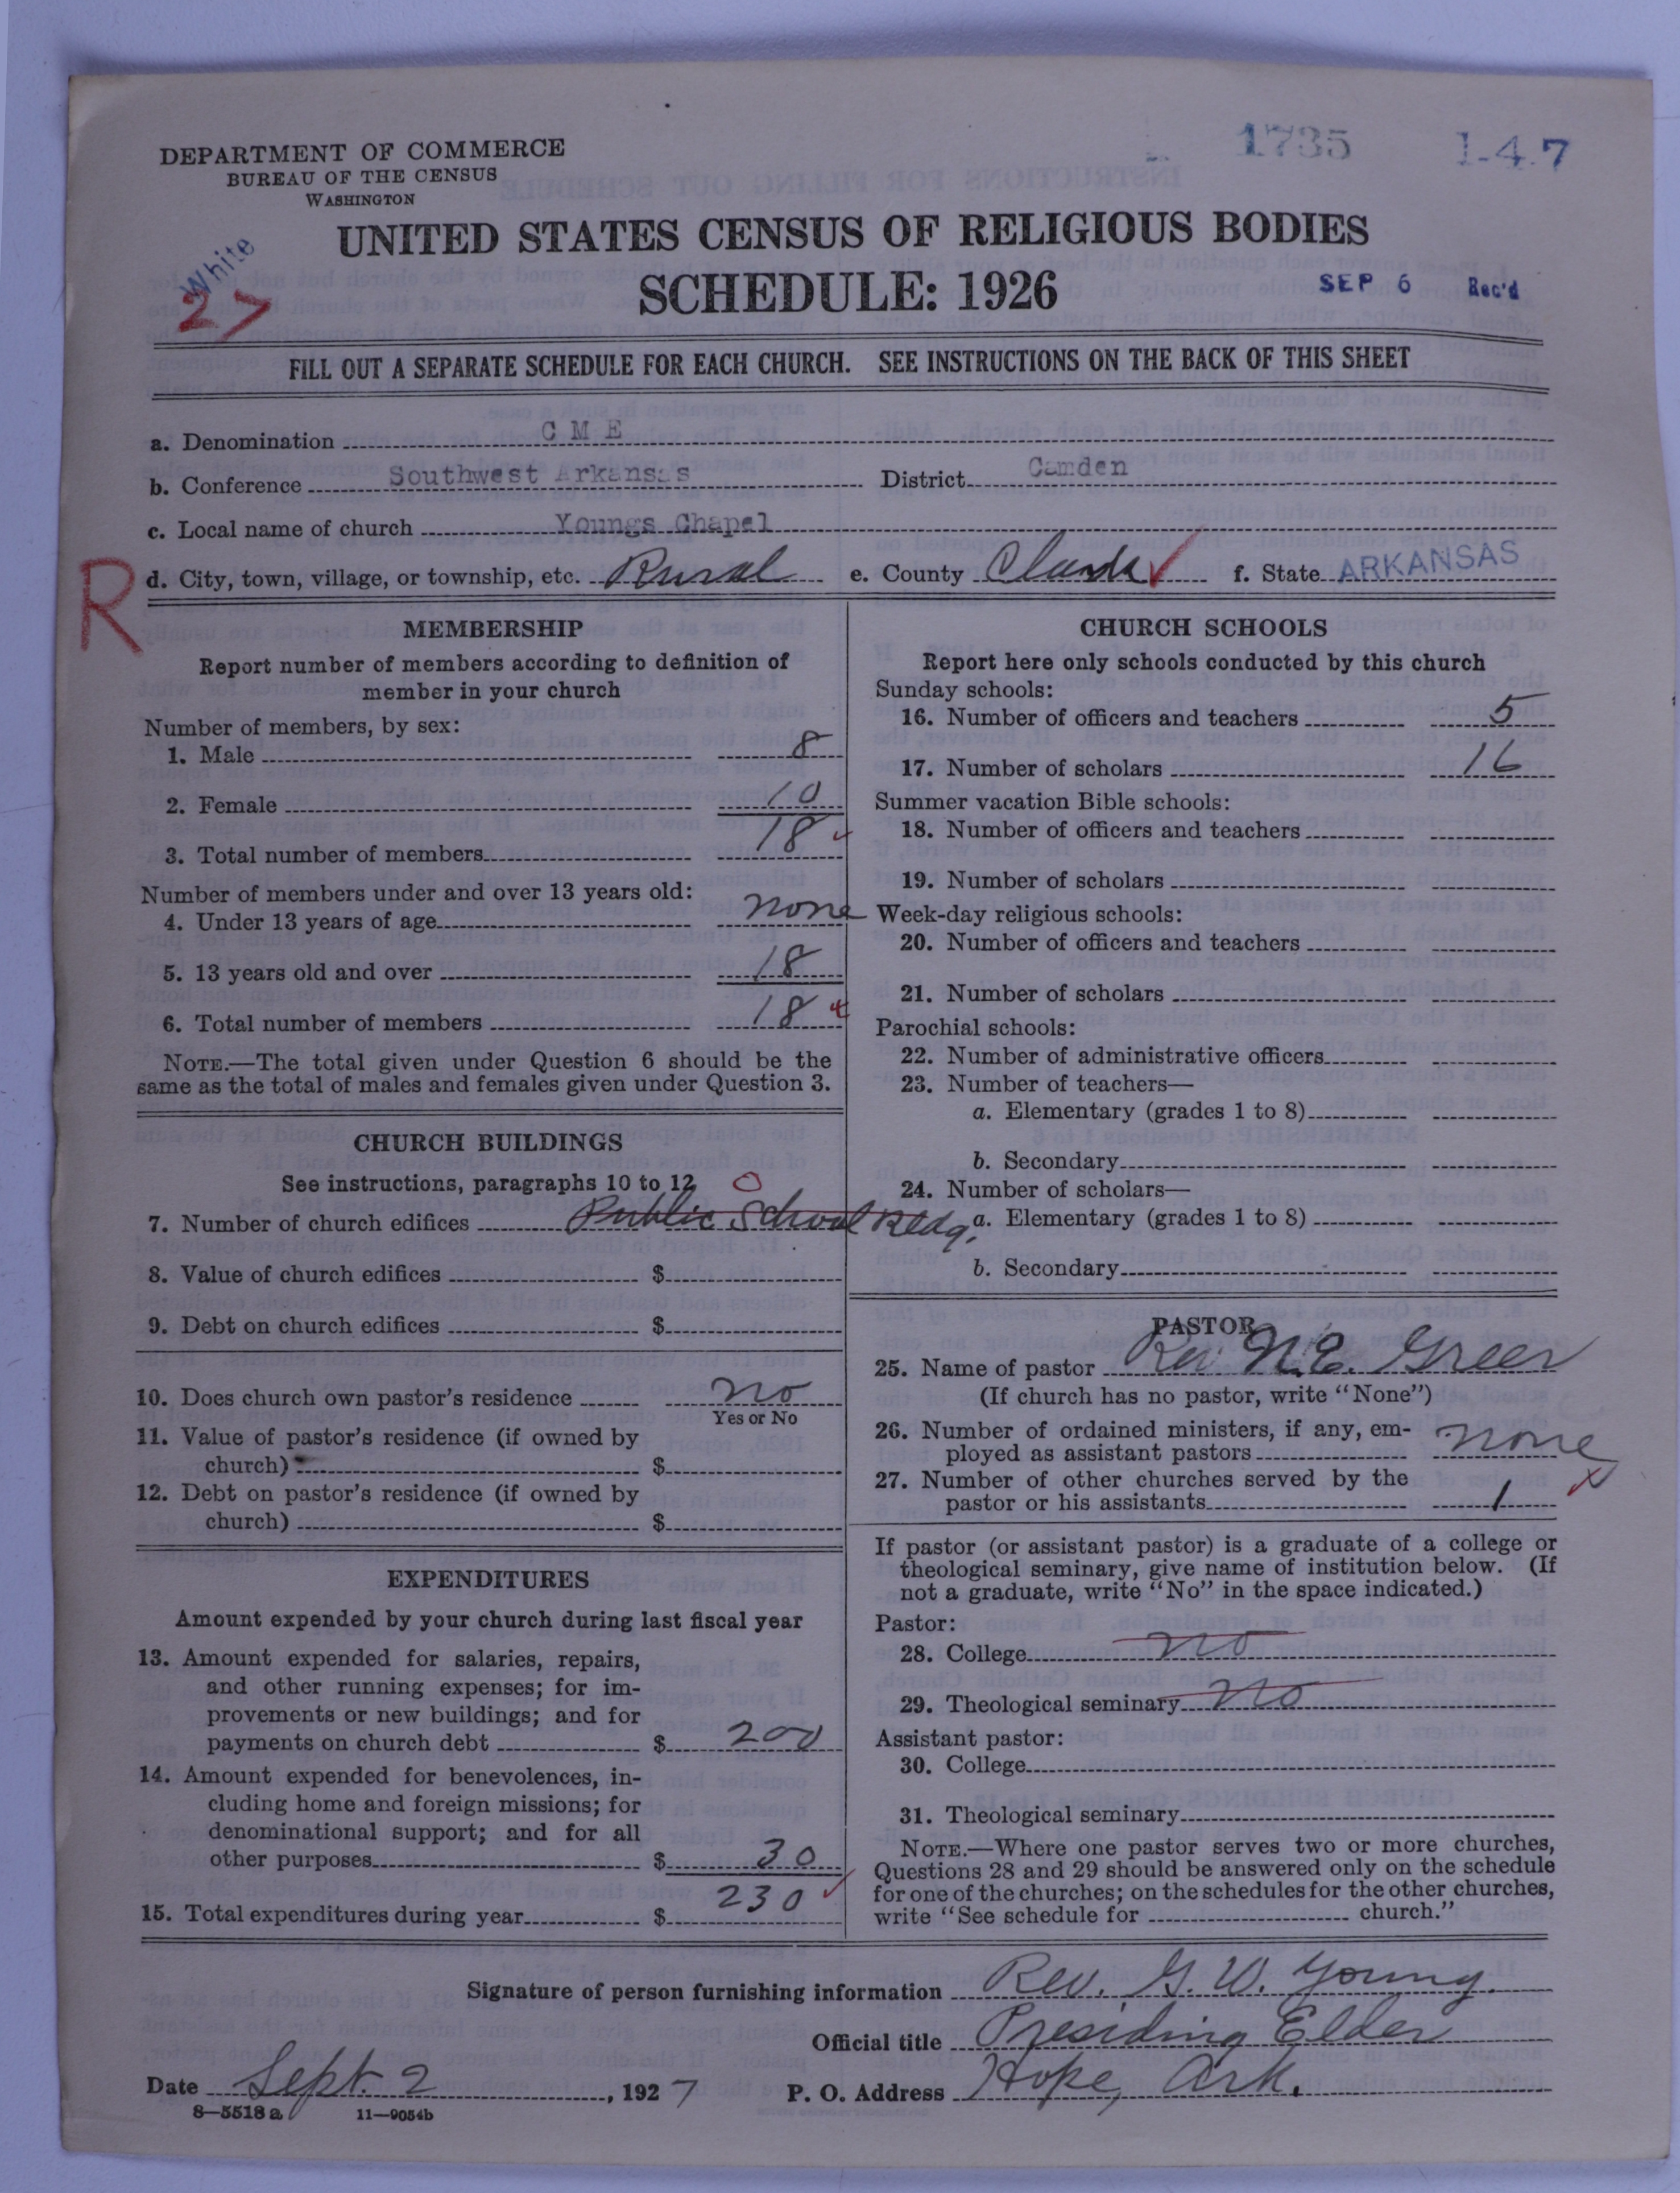 1735 1-4.7
DEPARTMENT OF COMMERCE
BUREAU OF THE CENSUS
WASHINGTON
UNITED STATES CENSUS OF RELIGIOUS BODIES
SCHEDULE: 1926
White
27
SEP 6 Rec'd
FILL OUT A SEPARATE SCHEDULE FOR EACH CHURCH. SEE INSTRUCTIONS ON THE BACK OF THIS SHEET
a. Denomination C M E
b. Conference Southwest Arkansas District Camden
c. Local name of church Youngs Chapel
R
d. City, town, village, or township, etc. Rural e. County f. State ARKANSAS
MEMBERSHIP
Report number of members according to definition of
member in your church
Number of members, by sex:
1. Male 8
2. Female 10
3. Total number of members 18
Number of members under and over 13 years old:
4. Under 13 years of age none
5. 13 years old and over 18
6. Total number of members 18
NOTE.—The total given under Question 6 should be the
same as the total of males and females given under Question 3.
CHURCH BUILDINGS
See instructions, paragraphs 10 to 12
0
7. Number of church edifices Public School Bldg.
8. Value of church edifices $
9. Debt on church edifices $
10. Does church own pastor's residence no
Yes or No
11. Value of pastor's residence (if owned by
church) $
12. Debt on pastor's residence (if owned by
church) $
EXPENDITURES
Amount expended by your church during last fiscal year
13. Amount expended for salaries, repairs,
and other running expenses; for im-
provements or new buildings; and for
payments on church debt $ 200
14. Amount expended for benevolences, in-
cluding home and foreign missions; for
denominational support; and for all
other purposes $ 30
15. Total expenditures during year $ 230
CHURCH SCHOOLS
Report here only schools conducted by this church
Sunday schools:
16. Number of officers and teachers 5
17. Number of scholars 16
Summer vacation Bible schools:
18. Number of officers and teachers
19. Number of scholars
Week-day religious schools:
20. Number of officers and teachers
21. Number of scholars
Parochial schools:
22. Number of administrative officers
23. Number of teachers—
a. Elementary (grades 1 to 8)
b. Secondary
24. Number of scholars—
a. Elementary (grades 1 to 8)
b. Secondary
PASTOR
25. Name of pastor Rev. N.E. Greer
(If church has no pastor, write "None")
26. Number of ordained ministers, if any, em-
ployed as assistant pastors none
27. Number of other churches served by the
pastor or his assistants 1
If pastor (or assistant pastor) is a graduate of a college or
theological seminary, give name of institution below. (If
not a graduate, write "No" in the space indicated.)
Pastor:
28. College no
29. Theological seminary no
Assistant pastor:
30. College
31. Theological seminary
NOTE.—Where one pastor serves two or more churches,
Questions 28 and 29 should be answered only on the schedule
for one of the churches; on the schedules for the other churches,
write "See schedule for church."
Signature of person furnishing information Rev. G. W. Young.
Official title Presiding Elder
Date Sept. 2, 1927 P. O. Address Hope, Ark.
8—5518 a 11—9054b